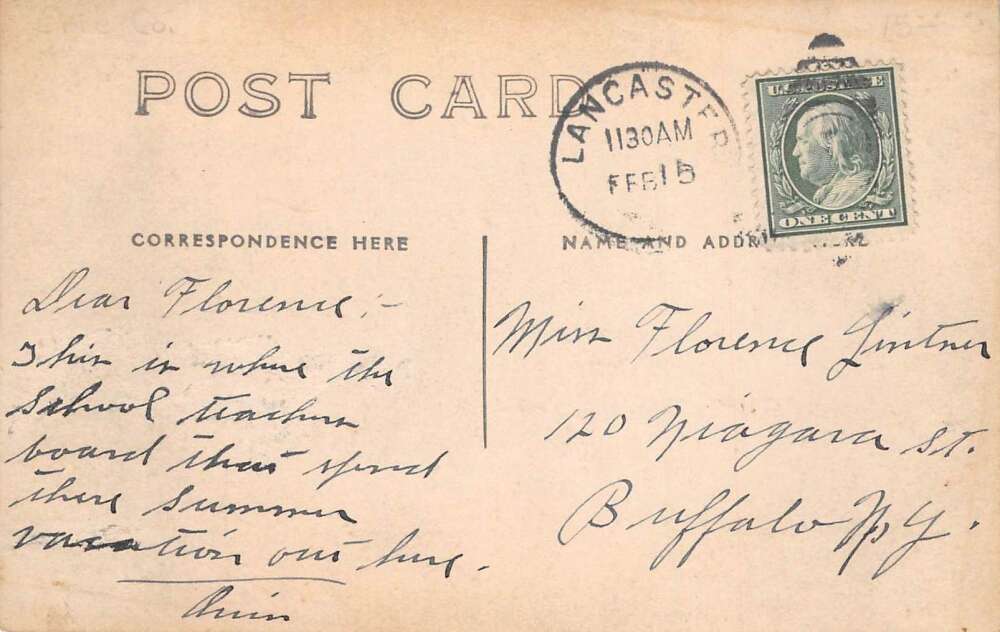 Erie Co.
POST CARD
LANCASTER
1130AM
FEB 15
U.S. POSTAGE
ONE CENT
CORRESPONDENCE HERE
NAME AND ADDRESS HERE
Dear Florence:-
This is where the
school teachers
board that spend
there summer
vacation out here.
Miss Florence Lintner
120 Niagara St.
Buffalo N.Y.